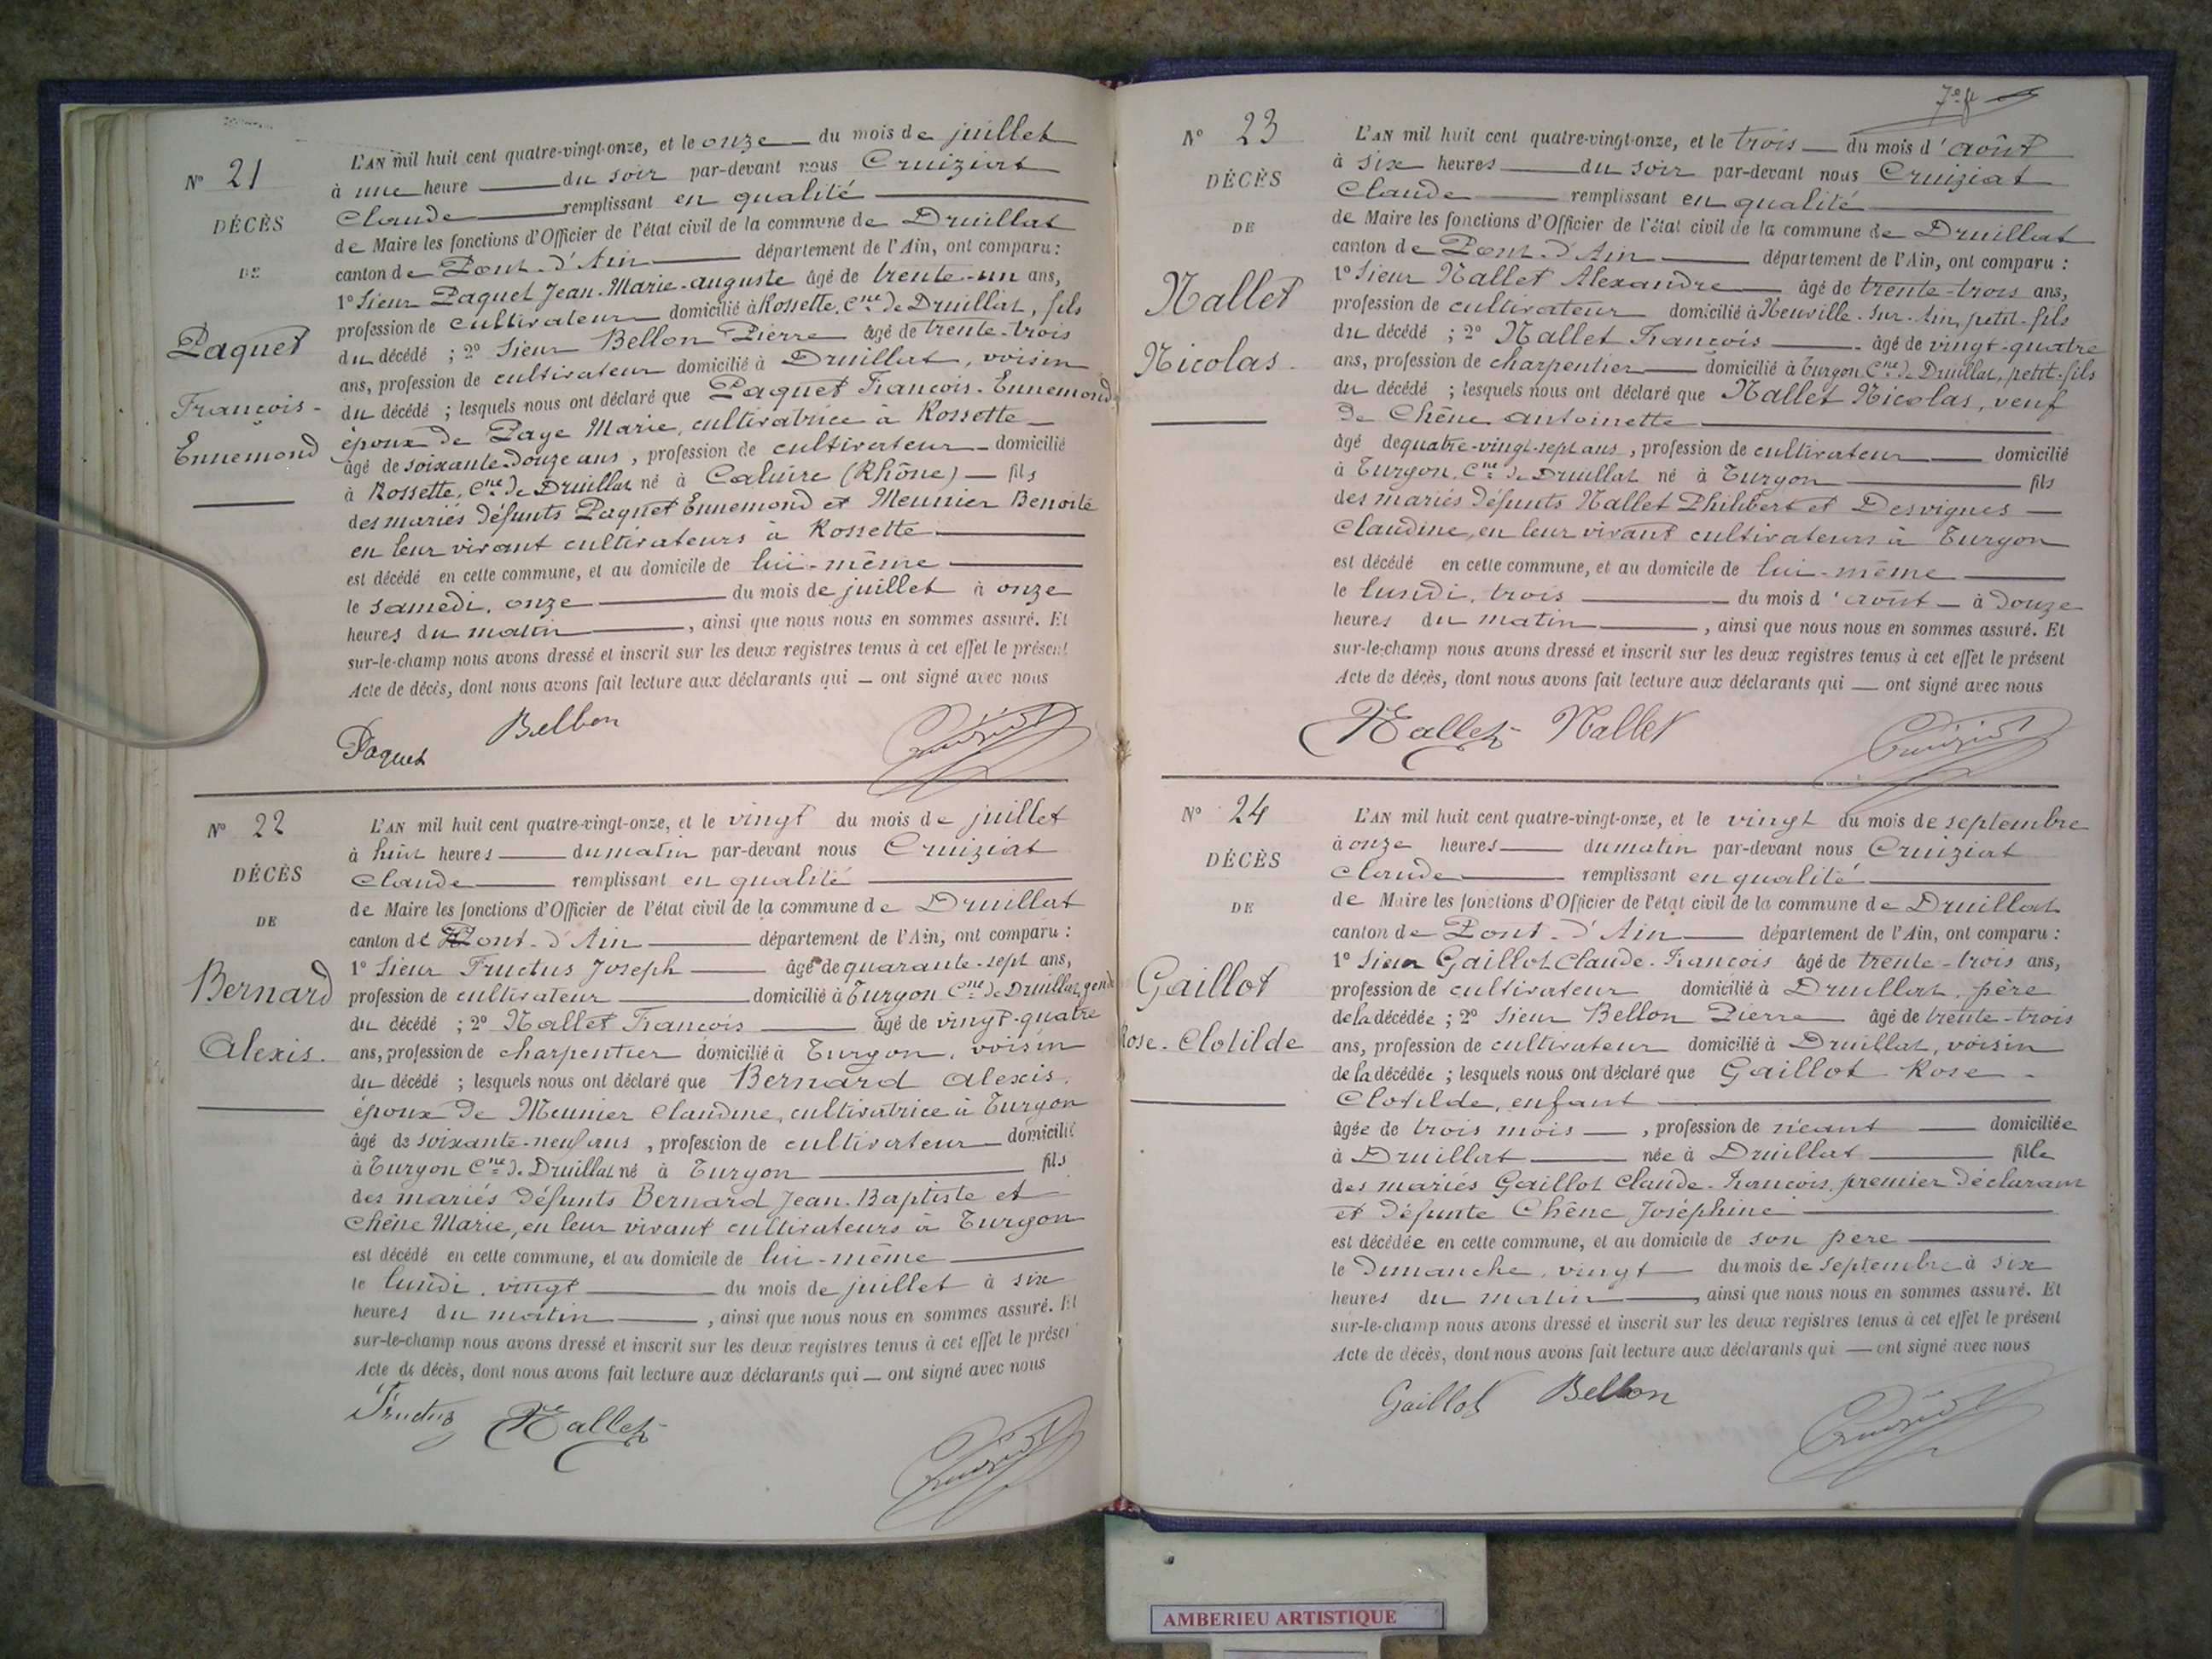 N° 21
DÉCÈS
DE
Paquet
François-
Ennemond
L'AN mil huit cent quatre-vingt-onze, et le onze du mois de juillet
à une heure du soir par-devant nous Cruiziat
Claude remplissant en qualité
de Maire les fonctions d'Officier de l'état civil de la commune de Druillat
canton de Pont-d'Ain département de l'Ain, ont comparu :
1° Sieur Paquet Jean-Marie-auguste âgé de trente-un ans,
profession de cultivateur domicilié à Rossette, Cne de Druillat, fils
du décédé ; 2° Sieur Bellon Pierre âgé de trente-trois
ans, profession de cultivateur domicilié à Druillat, voisin
du décédé ; lesquels nous ont déclaré que Paquet François-Ennemond
époux de Page Marie, cultivatrice à Rossette
âgé de soixante-douze ans, profession de cultivateur domicilié
à Rossette, Cne de Druillat né à Caluire (Rhône) fils
des mariés défunts Paquet Ennemond et Meunier Benoîte
en leur vivant cultivateurs à Rossette
est décédé en cette commune, et au domicile de lui-même
le samedi, onze du mois de juillet à onze
heures du matin, ainsi que nous nous en sommes assuré. Et
sur-le-champ nous avons dressé et inscrit sur les deux registres tenus à cet effet le présent
Acte de décès, dont nous avons fait lecture aux déclarants qui — ont signé avec nous
Paquet Bellon Cruiziat
N° 22
DÉCÈS
DE
Bernard
Alexis.
L'AN mil huit cent quatre-vingt-onze, et le vingt du mois de juillet
à huit heures du matin par-devant nous Cruiziat
Claude remplissant en qualité
de Maire les fonctions d'Officier de l'état civil de la commune de Druillat
canton de Pont-d'Ain département de l'Ain, ont comparu :
1° Sieur Fructus Joseph âgé de quarante-sept ans,
profession de cultivateur domicilié à Turgon Cne de Druillat, gendre
du décédé ; 2° Nallet François âgé de vingt-quatre
ans, profession de charpentier domicilié à Turgon, voisin
du décédé ; lesquels nous ont déclaré que Bernard Alexis,
époux de Meunier Claudine, cultivatrice à Turgon
âgé de soixante-neuf ans, profession de cultivateur domicilié
à Turgon Cne de Druillat né à Turgon fils
des mariés défunts Bernard Jean-Baptiste et
Chêne Marie, en leur vivant cultivateurs à Turgon
est décédé en cette commune, et au domicile de lui-même
le lundi, vingt du mois de juillet à six
heures du matin, ainsi que nous nous en sommes assuré. Et
sur-le-champ nous avons dressé et inscrit sur les deux registres tenus à cet effet le présent
Acte de décès, dont nous avons fait lecture aux déclarants qui — ont signé avec nous
Fructus Nallet Cruiziat
N° 23
DÉCÈS
DE
Nallet
Nicolas.
L'AN mil huit cent quatre-vingt-onze, et le trois du mois d'août
à six heures du soir par-devant nous Cruiziat
Claude remplissant en qualité
de Maire les fonctions d'Officier de l'état civil de la commune de Druillat
canton de Pont-d'Ain département de l'Ain, ont comparu :
1° Sieur Nallet Alexandre âgé de trente-trois ans,
profession de cultivateur domicilié à Neuville-sur-Ain, petit-fils
du décédé ; 2° Nallet François âgé de vingt-quatre
ans, profession de charpentier domicilié à Turgon Cne de Druillat, petit-fils
du décédé ; lesquels nous ont déclaré que Nallet Nicolas, veuf
de Chêne Antoinette
âgé de quatre-vingt-sept ans, profession de cultivateur domicilié
à Turgon, Cne de Druillat né à Turgon fils
des mariés défunts Nallet Philibert et Desvignes
Claudine, en leur vivant cultivateurs à Turgon
est décédé en cette commune, et au domicile de lui-même
le lundi, trois du mois d'août à douze
heures du matin, ainsi que nous nous en sommes assuré. Et
sur-le-champ nous avons dressé et inscrit sur les deux registres tenus à cet effet le présent
Acte de décès, dont nous avons fait lecture aux déclarants qui — ont signé avec nous
Nallet Nallet Cruiziat
N° 24
DÉCÈS
DE
Gaillot
Rose-Clotilde
L'AN mil huit cent quatre-vingt-onze, et le vingt du mois de septembre
à onze heures du matin par-devant nous Cruiziat
Claude remplissant en qualité
de Maire les fonctions d'Officier de l'état civil de la commune de Druillat
canton de Pont-d'Ain département de l'Ain, ont comparu :
1° Sieur Gaillot Claude-François âgé de trente-trois ans,
profession de cultivateur domicilié à Druillat, père
de la décédée ; 2° Sieur Bellon Pierre âgé de trente-trois
ans, profession de cultivateur domicilié à Druillat, voisin
de la décédée ; lesquels nous ont déclaré que Gaillot Rose-
Clotilde, enfant
âgée de trois mois, profession de néant domiciliée
à Druillat née à Druillat fille
des mariés Gaillot Claude-François, premier déclarant
et défunte Chêne Joséphine
est décédée en cette commune, et au domicile de son père
le Dimanche, vingt du mois de septembre à six
heures du matin, ainsi que nous nous en sommes assuré. Et
sur-le-champ nous avons dressé et inscrit sur les deux registres tenus à cet effet le présent
Acte de décès, dont nous avons fait lecture aux déclarants qui — ont signé avec nous
Gaillot Bellon Cruiziat
AMBERIEU ARTISTIQUE